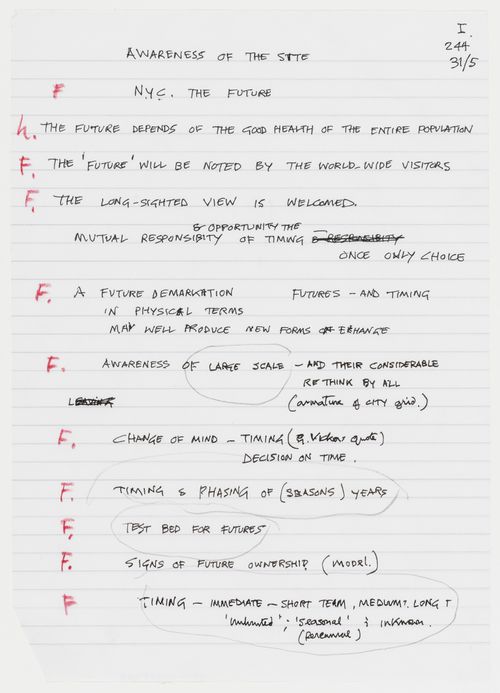 I.
244
31/5
AWARENESS OF THE SITE
F N.Y.C. THE FUTURE
h. THE FUTURE DEPENDS OF THE GOOD HEALTH OF THE ENTIRE POPULATION
F. THE 'FUTURE' WILL BE NOTED BY THE WORLD-WIDE VISITORS
F. THE LONG-SIGHTED VIEW IS WELCOMED.
& OPPORTUNITY THE
MUTUAL RESPONSIBITY OF TIMING & RESPONSIBITY
ONCE ONLY CHOICE
F. A FUTURE DEMARKATION FUTURES - AND TIMING
IN PHYSICAL TERMS
MAY WELL PRODUCE NEW FORMS OF EXHANGE
F. AWARENESS OF LARGE SCALE - AND THEIR CONSIDERABLE
RETHINK BY ALL
(armature of CITY grid.)
F. CHANGE OF MIND - TIMING (G. Vickers quote)
DECISION ON TIME.
F. TIMING & PHASING OF (SEASONS) YEARS
F. TEST BED FOR FUTURES
F. SIGNS OF FUTURE OWNERSHIP (MODEL.)
F TIMING - IMMEDIATE - SHORT TERM, MEDIUM T. LONG T
'unlimited'; 'seasonal' &
(perennial)